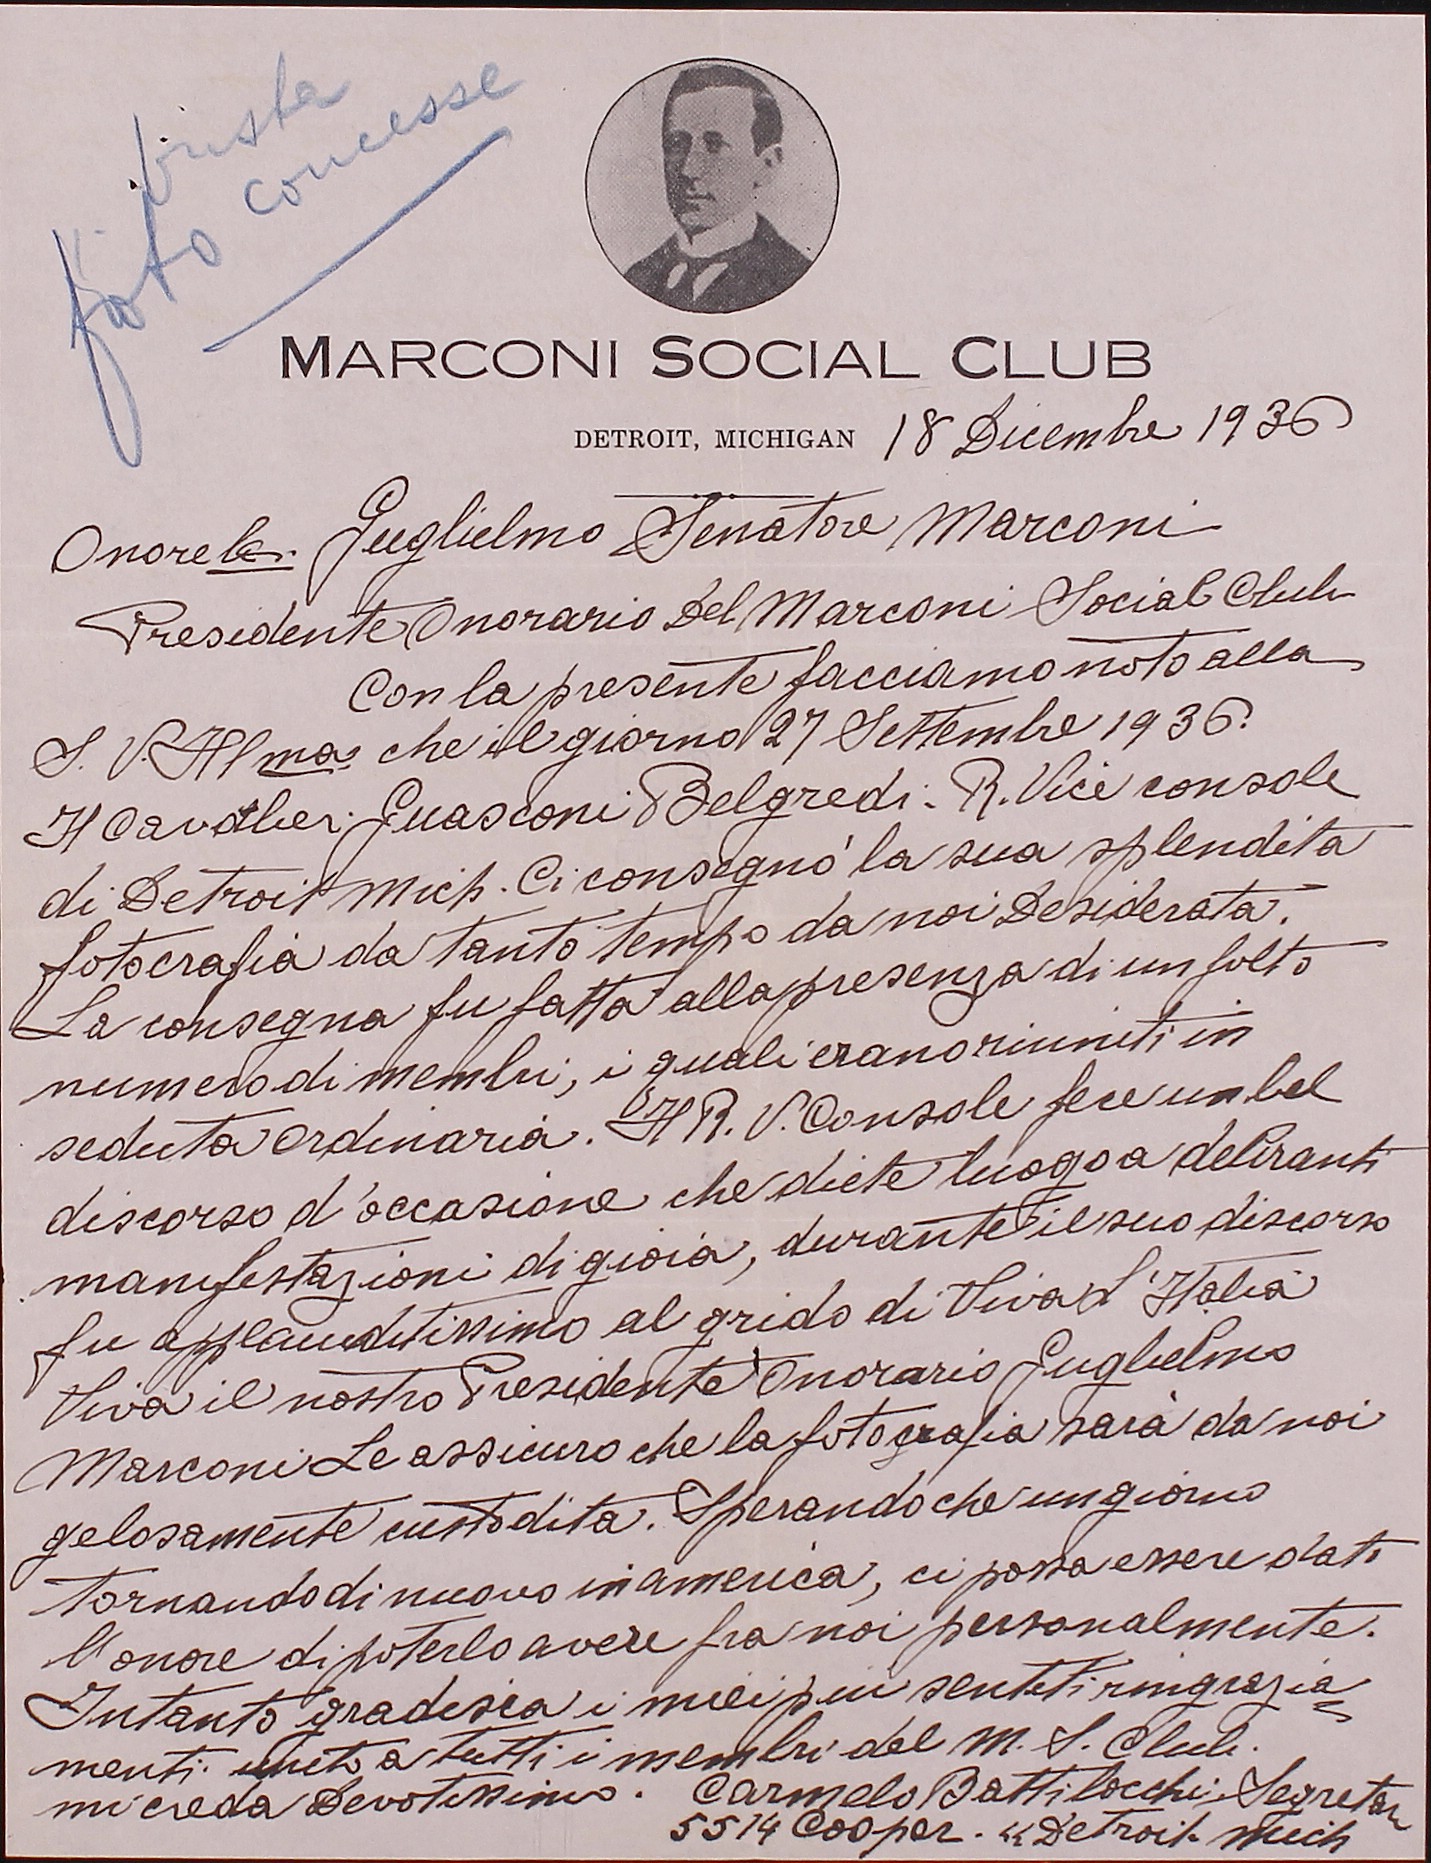 foto concesse
MARCONI SOCIAL CLUB
DETROIT, MICHIGAN 18 Dicembre 1936
Onorele. Guglielmo Senatore Marconi
Presidente Onorario Del Marconi Social Club
Con la presente facciamo noto alla
S. V. Illma. che il giorno 27 Settembre 1936.
Il Cavalier. Guasconi Belgredi. R. Vice console
di Detroit Mich. Ci consegnò la sua splendita
fotocrafia da tanto tempo da noi Desiderata.
La consegna fu fatta alla presenza di un folto
numero di membri, i quali erano riuniti in
seduta ordinaria. Il R. V. Console fece un bel
discorso d'occasione che diete luogo a deliranti
manifestazioni di gioia, durante il suo discorso
fu applauditissimo al grido di Viva L'Italia
Viva il nostro Presidente Onorario Guglielmo
Marconi Le assicuro che la fotografia sarà da noi
gelosamente custodita. Sperando che un giorno
tornando di nuovo in america, ci possa essere dato
l'onore di poterlo avere fra noi personalmente.
Intanto gradisca i miei più sentiti ringrazia
menti. a tutti i membri del M. S. Club.
mi creda Devotissimo. Carmelo Battilocchi. Segretar
5514 Cooper. " Detroit. Mich